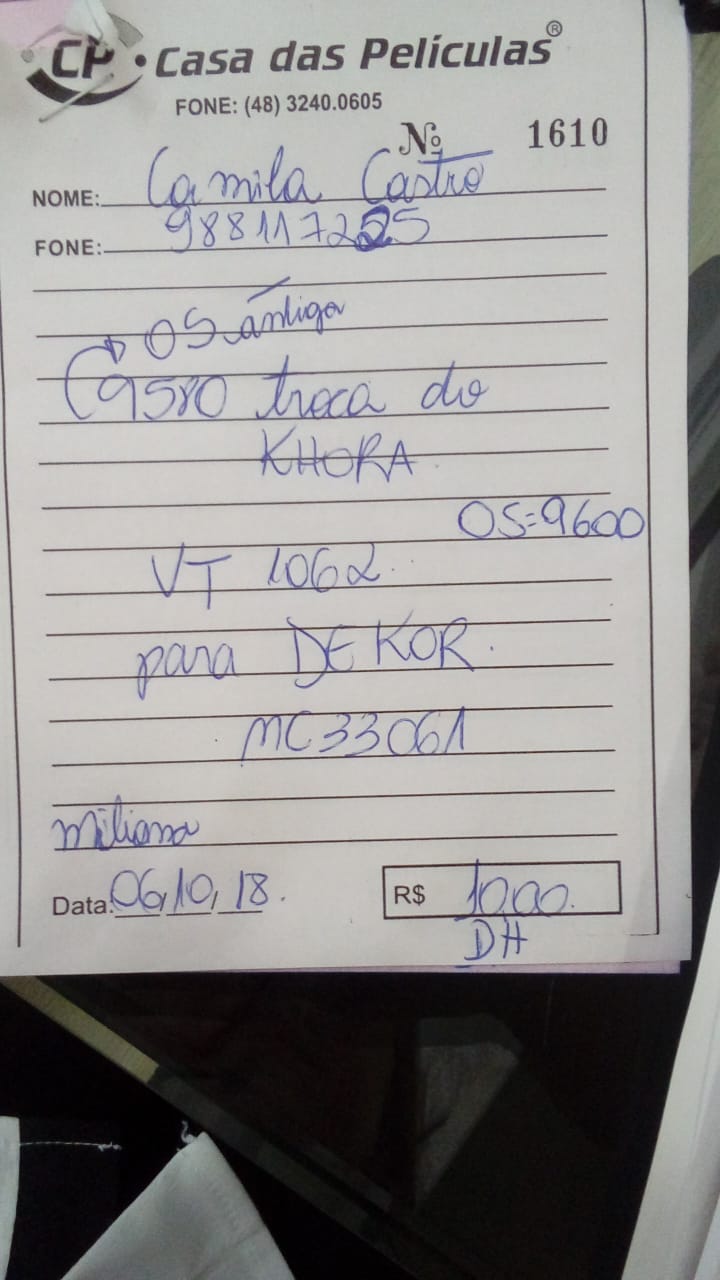 CP • Casa das Películas®
FONE: (48) 3240.0605
Nº 1610
NOME: Camila Castro
FONE: 988117225
OS antiga
9580 troca do
KHORA
OS=9600
VT 1062
para DEKOR.
MC33061
miliana
Data: 06,10,18.
R$ 10,00.
DH